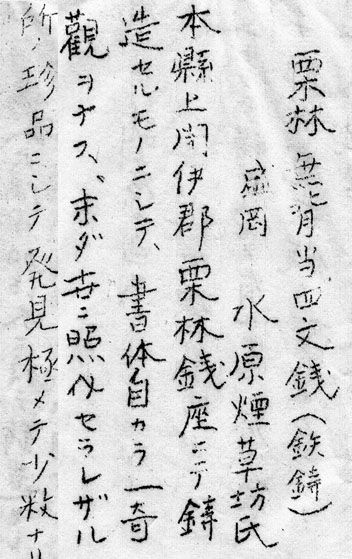 栗林 無背当四文銭(鉄鋳)
盛岡 水原煙草坊氏
本縣上閉伊郡栗林銭座ニテ鋳
造セルモノニシテ、書体自カラ一奇
觀ヲナス、未ダ世ニ照介セラレザル
所ノ珍品ニシテ発見極メテ少数ナリ